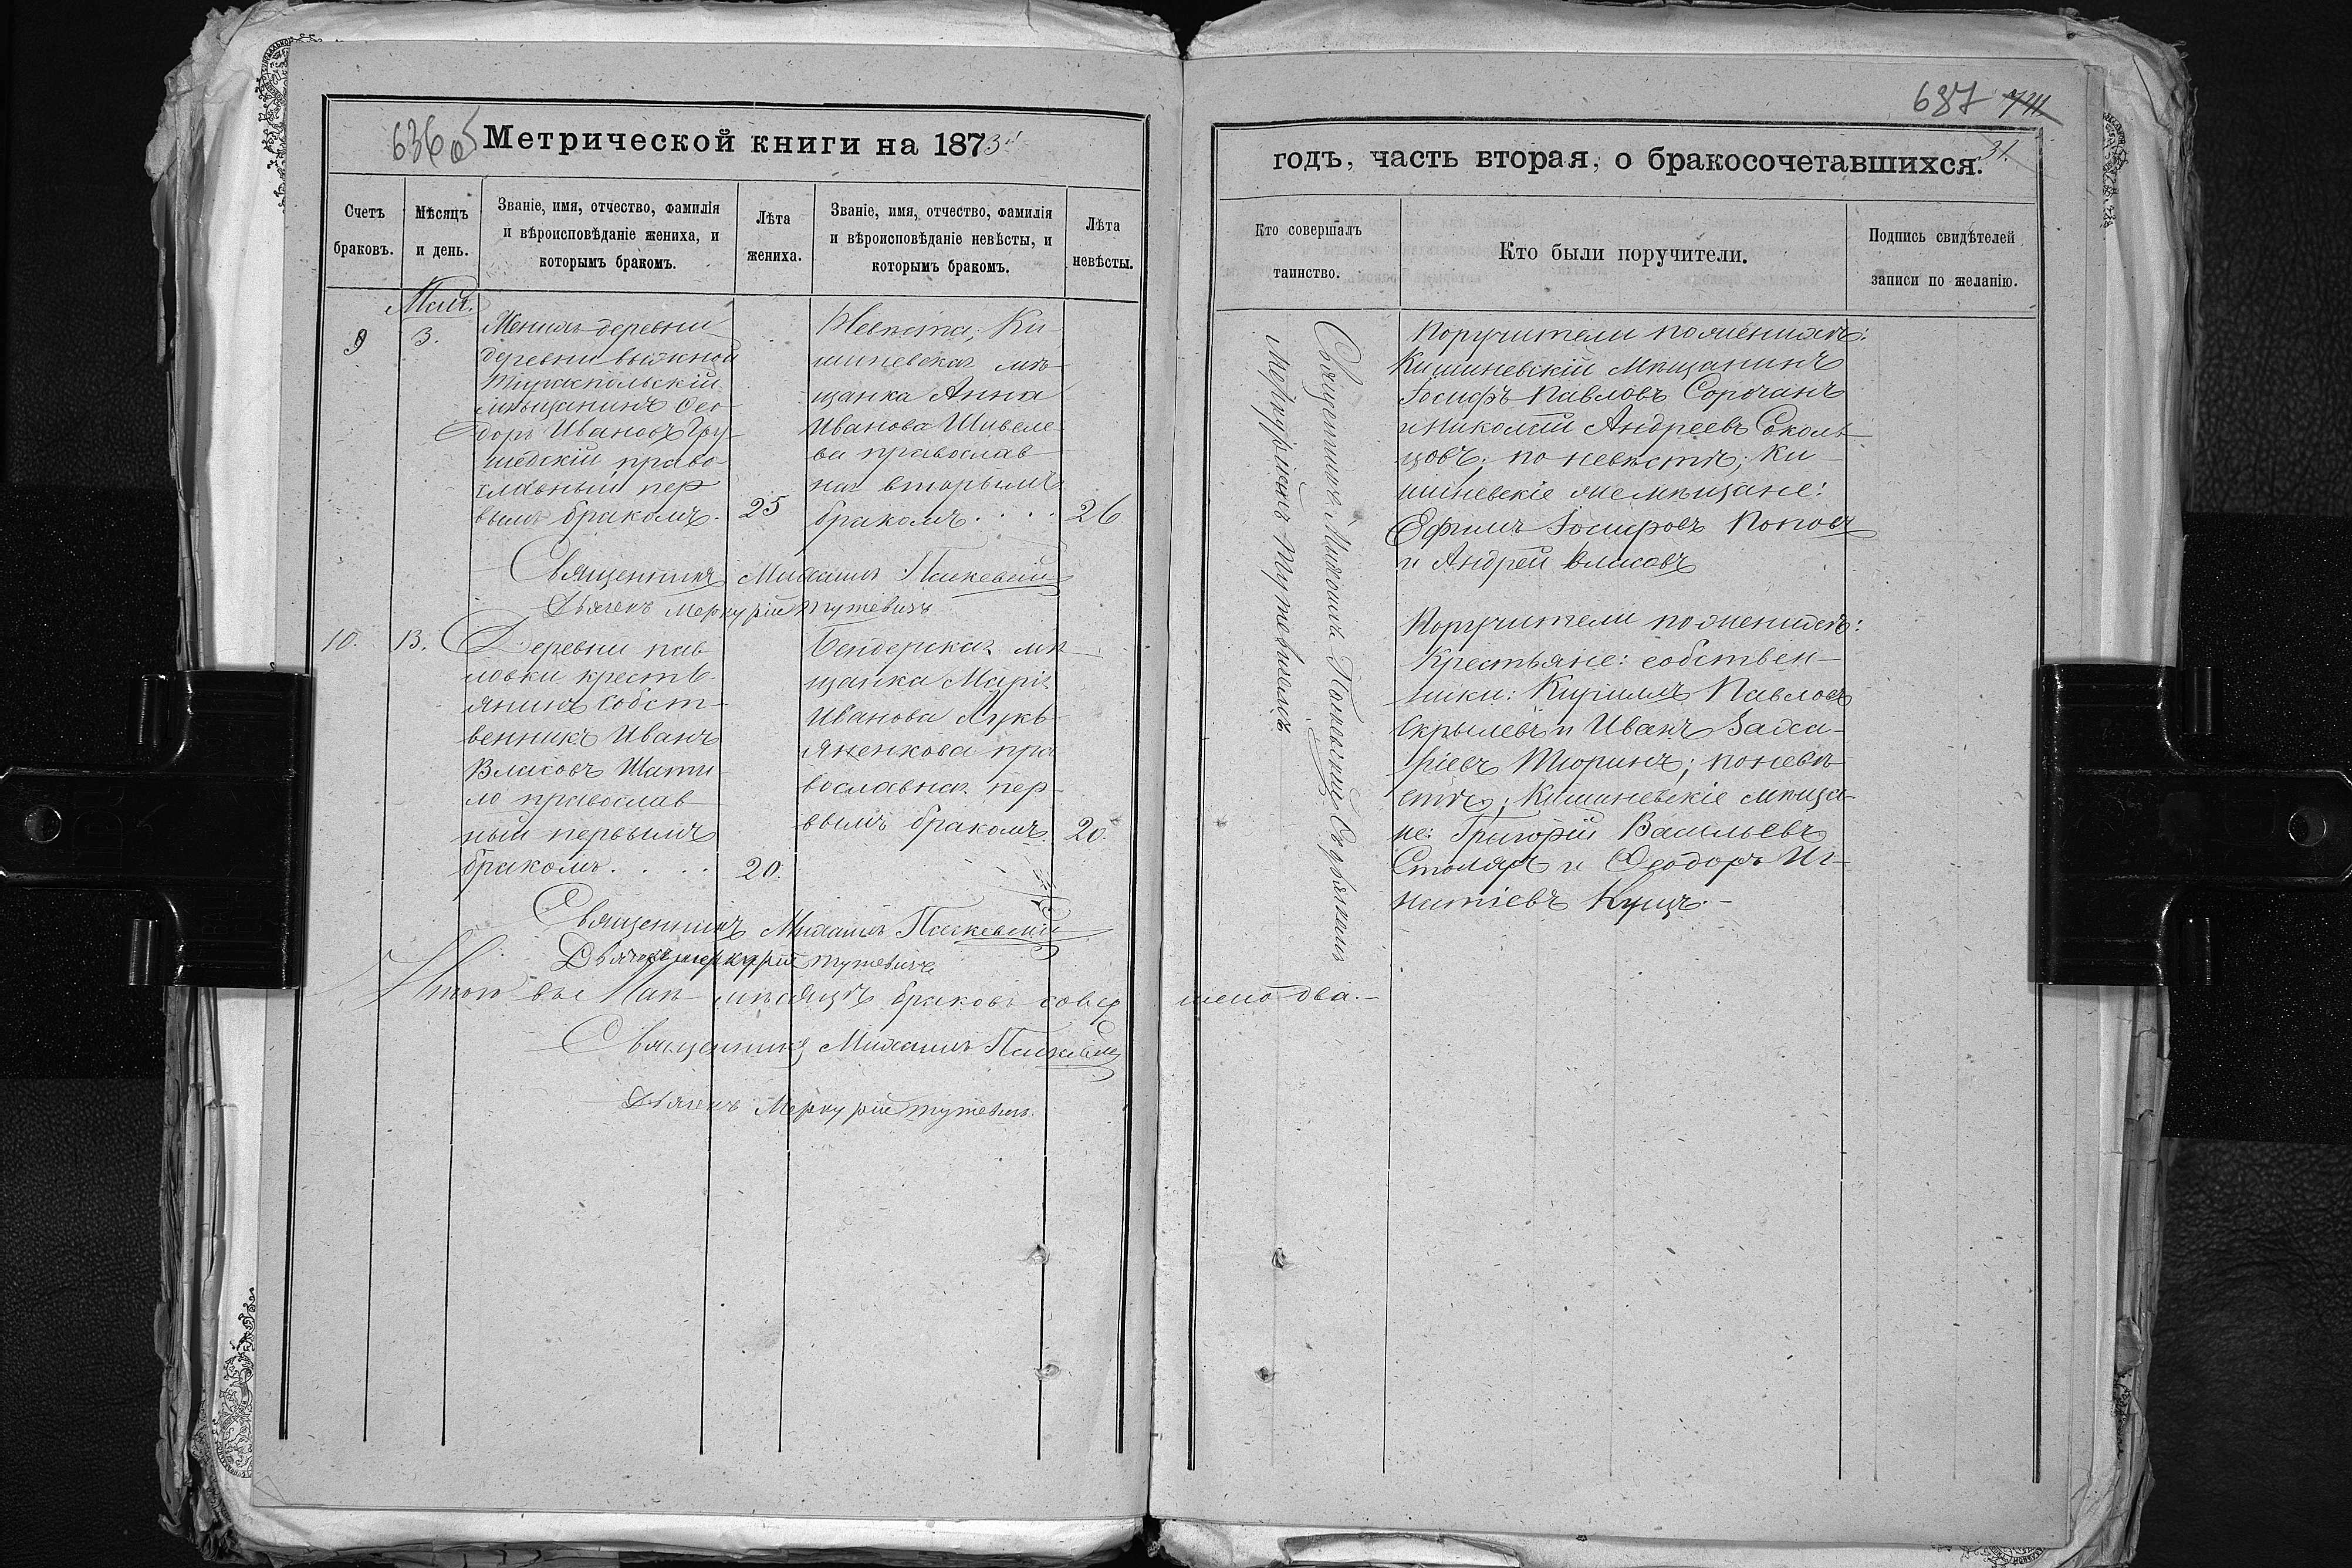 636 об
Метрической книги на 1873
Счетъ браковъ.
Мѣсяцъ и день.
Званіе, имя, отчество, фамилія
и вѣроисповѣданіе жениха, и
которымъ бракомъ.
Лѣта жениха.
Званіе, имя, отчество, фамилія
и вѣроисповѣданіе невѣсты, и
которымъ бракомъ.
Лѣта невѣсты.
Май.
9
3.
Женихъ деревни
деревни
Тираспольскій
мѣщанинъ Ѳео
доръ Ивановъ
право
славный пер
вымъ бракомъ.
25
Невѣста; Ки
шиневская мѣ
щанка Анна
Иванова
ва православ
ная вторымъ
бракомъ....
26.
Священникъ Михаилъ
Дьячекъ Меркурій Тутевичъ
10.
13.
Деревни Пав
ловки кресть
янинъ собст
венникъ Иванъ
Власовъ Шати
ло православ
ный первымъ
бракомъ....
20.
Бендерская мѣ
щанка Марія
Иванова Лукь
яненкова пра
вославная пер
вымъ бракомъ.
20.
Священникъ Михаилъ
Дьячекъ Меркурій Тутевичъ
Итого въ Маѣ мѣсяцѣ браковъ совер
шено два.—
Священникъ Михаилъ
Дьячекъ Меркурій Тутевичъ
687
31.
годъ, часть вторая, о бракосочетавшихся.
Кто совершалъ таинство.
Кто были поручители.
Подпись свидѣтелей
записи по желанію.
Священникъ Михаилъ
Меркуріемъ Тутевичемъ
Поручители по женихѣ:
Кишиневскій Мѣщанинъ
Іосифъ Павловъ Сорочанъ
и Николай Андреевъ Сколь
цовъ; по невѣстѣ; Ки
шиневскіе же мѣщане:
Ефимъ Іосифовъ Поповъ
и Андрей Власовъ
Поручители по женихѣ:
Крестьяне: собствен
ники: Кирилъ Павловъ
Скрылевъ и Иванъ Заха
ріевъ Тюринъ; по невѣ
стѣ; Кишиневскіе мѣща
не: Григорій Васильевъ
Столяръ и Ѳеодоръ Иг
натіевъ Куцъ.—